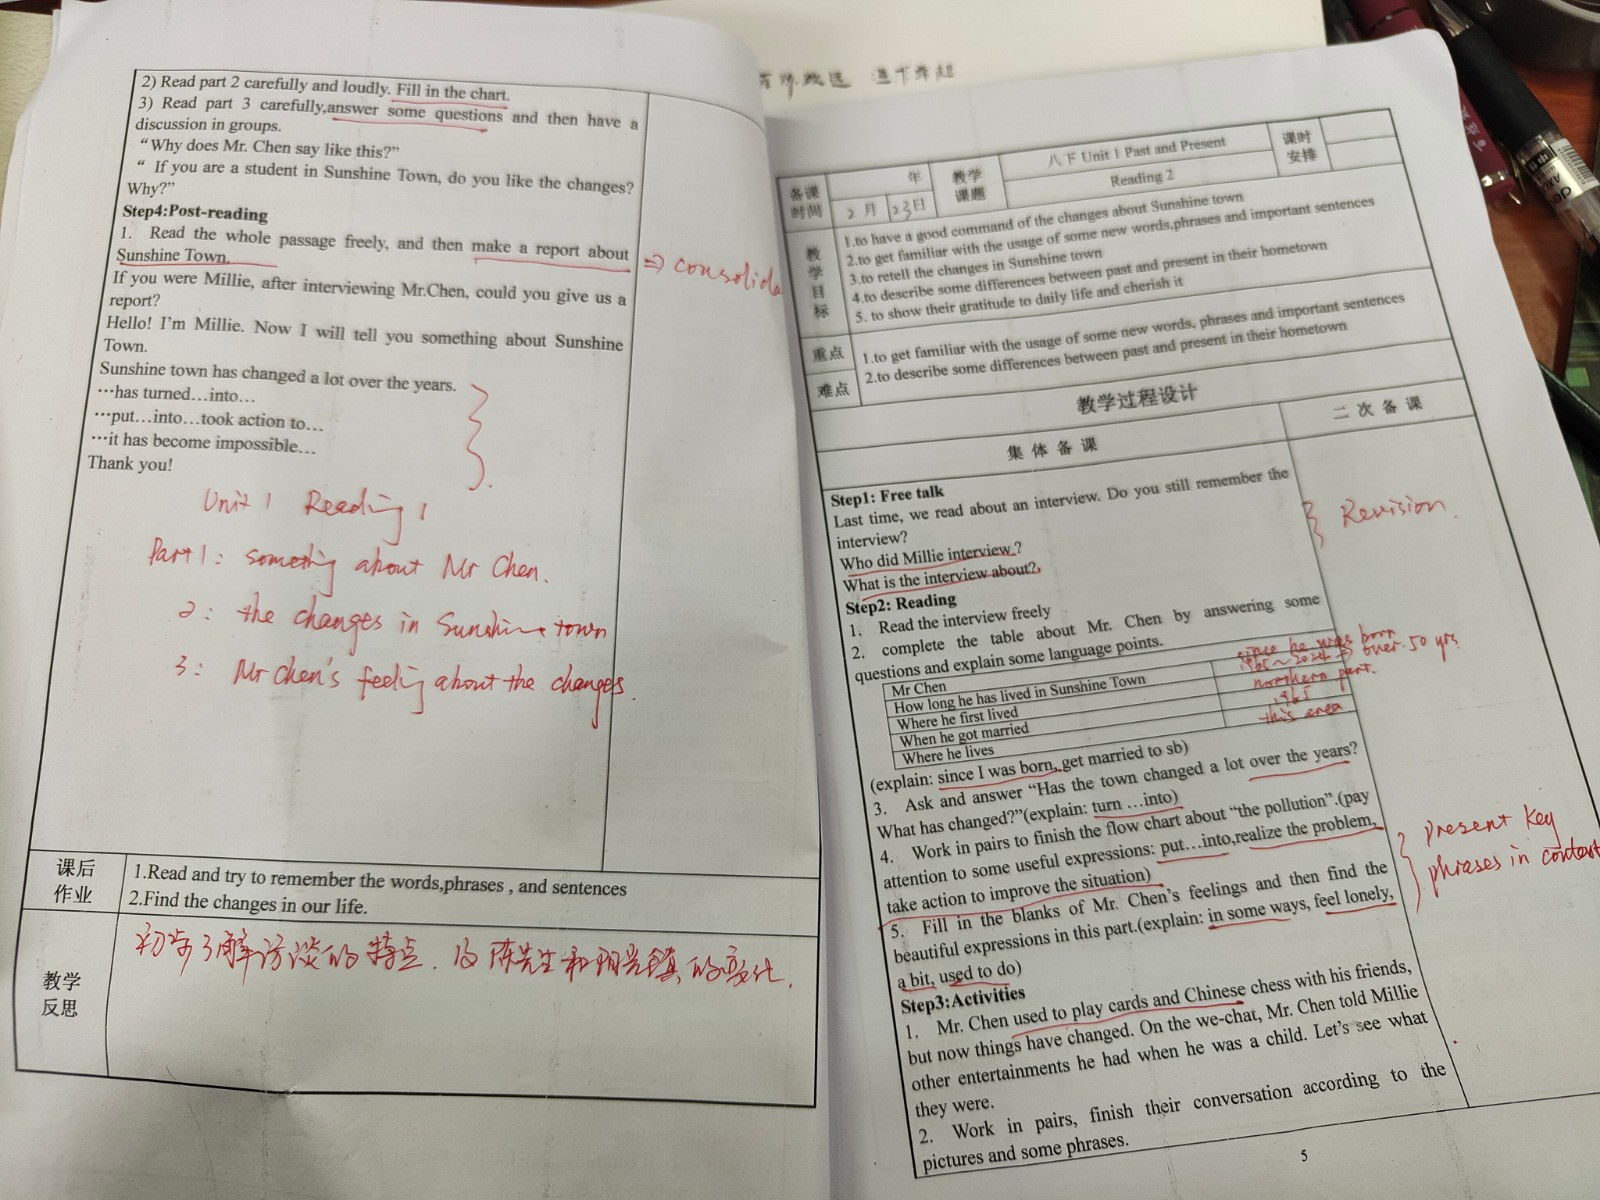 2) Read part 2 carefully and loudly. Fill in the chart.
3) Read part 3 carefully,answer some questions and then have a
discussion in groups.
“Why does Mr. Chen say like this?”
“ If you are a student in Sunshine Town, do you like the changes?
Why?”
Step4:Post-reading
1. Read the whole passage freely, and then make a report about
Sunshine Town.
⇒ consolida
If you were Millie, after interviewing Mr.Chen, could you give us a
report?
Hello! I’m Millie. Now I will tell you something about Sunshine
Town.
Sunshine town has changed a lot over the years.
…has turned…into…
…put…into…took action to…
…it has become impossible…
Thank you!
Unit 1 Reading 1
Part 1: something about Mr Chen.
2: the changes in Sunshine town
3: Mr Chen's feeling about the changes.
课后
作业
1.Read and try to remember the words,phrases , and sentences
2.Find the changes in our life.
教学
反思
初步了解访谈的特点. 及陈先生和阳光镇的变化.
备课
时间
年
2月 23日
教学
课题
八下 Unit 1 Past and Present
Reading 2
课时
安排
教
学
目
标
1.to have a good command of the changes about Sunshine town
2.to get familiar with the usage of some new words,phrases and important sentences
3.to retell the changes in Sunshine town
4.to describe some differences between past and present in their hometown
5. to show their gratitude to daily life and cherish it
重点
难点
1.to get familiar with the usage of some new words, phrases and important sentences
2.to describe some differences between past and present in their hometown
教学过程设计
集 体 备 课
二 次 备 课
Step1: Free talk
Last time, we read about an interview. Do you still remember the
interview?
Who did Millie interview ?
What is the interview about?
Revision.
Step2: Reading
1. Read the interview freely
2. complete the table about Mr. Chen by answering some
questions and explain some language points.
Mr Chen
How long he has lived in Sunshine Town
since he was born
1965~2024 ⇒ over 50 yrs.
Where he first lived
northern part.
When he got married
1965
Where he lives
this area
(explain: since I was born, get married to sb)
3. Ask and answer “Has the town changed a lot over the years?
What has changed?”(explain: turn …into)
4. Work in pairs to finish the flow chart about “the pollution”.(pay
attention to some useful expressions: put…into,realize the problem,
take action to improve the situation)
5. Fill in the blanks of Mr. Chen’s feelings and then find the
beautiful expressions in this part.(explain: in some ways, feel lonely,
a bit, used to do)
present key
phrases in context
Step3:Activities
1. Mr. Chen used to play cards and Chinese chess with his friends,
but now things have changed. On the we-chat, Mr. Chen told Millie
other entertainments he had when he was a child. Let’s see what
they were.
2. Work in pairs, finish their conversation according to the
pictures and some phrases.
5